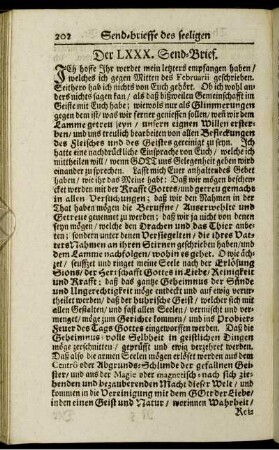 202 Send-brieffe des seeligen
Der LXXX. Send-Brief.
ICh hoffe Ihr werdet mein letzters empfangen haben /
welches ich gegen Mitten des Februarii geschrieben.
Seithero hab ich nichts von Euch gehört. Ob ich wohl an-
ders nichts sagen kan / als daß bißweilen Gemeinschafft im
Geiste mit Euch habe; wiewols nur als Glimmerungen
gegen dem ist / was wir ferner geniessen sollen / wen wir dem
Lamme getreu seyn / unsern eignen Willen erster-
ben / und uns treulich bearbeiten von allen Befleckungen
des Fleisches und des Geistes gereiniget zu seyn. Ich
hatte eine nachdrückliche Einsprache von Ihm / welche ich
mittheilen will / wenn GOTT uns Gelegenheit geben wird
einander zu sprechen. Lasst mich Euer anhaltendes Gebet
haben / wie ihr das Meine habt: Daß wir mögen beschen-
cket werden mit der Krafft Gottes / und getreu gemacht
in allen Versuchungen; daß wir mit den Nahmen in der
That haben mögen die Beruffne / Auserwehlte und
Getreue genennet zu werden; daß wir ja nicht von denen
seyn mögen / welche den Drachen und das Thier anbe-
ten; sondern unter denen Versiegelten / die ihres Vat-
ters Nahmen an ihren Stirnen geschrieben haben / und
dem Lamme nachfolgen / wohin es gehet. O wie äch-
zet / seuffzet und ringet meine Seele nach der Erlösung
Sions / der Herrschafft Gottes in Liebe / Reinigkeit
und Krafft; daß das gantze Geheimnus der Sünde
und Ungerechtigkeit möge entdeckt und auf ewig verur-
theilet werden / daß der hubrische Geist / welcher sich mit
allen Gestalten / und fast allen Seelen / vermischt und ver-
menget / möge zum Gerichte kommen / und ins Probier-
Feuer des Tags Gottes eingeworffen werden. Daß die
Geheimnus-volle Selbheit in geistlichen Dingen
möge zerschnitten / geprüfft und ewig verzehret werden.
Daß also die armen Seelen mögen erlöset werden aus dem
Centrô oder Abgrunds-Schlunde der gefallnen Gei-
ster / und aus der Magie oder magnetisch-nach sich zie-
henden und bezaubrenden Macht dieser Welt / und
kommen in die Vereinigung mit dem GOtt der Liebe/
in einen Geist und Natur / worinnen Wahrheit /
Rei-